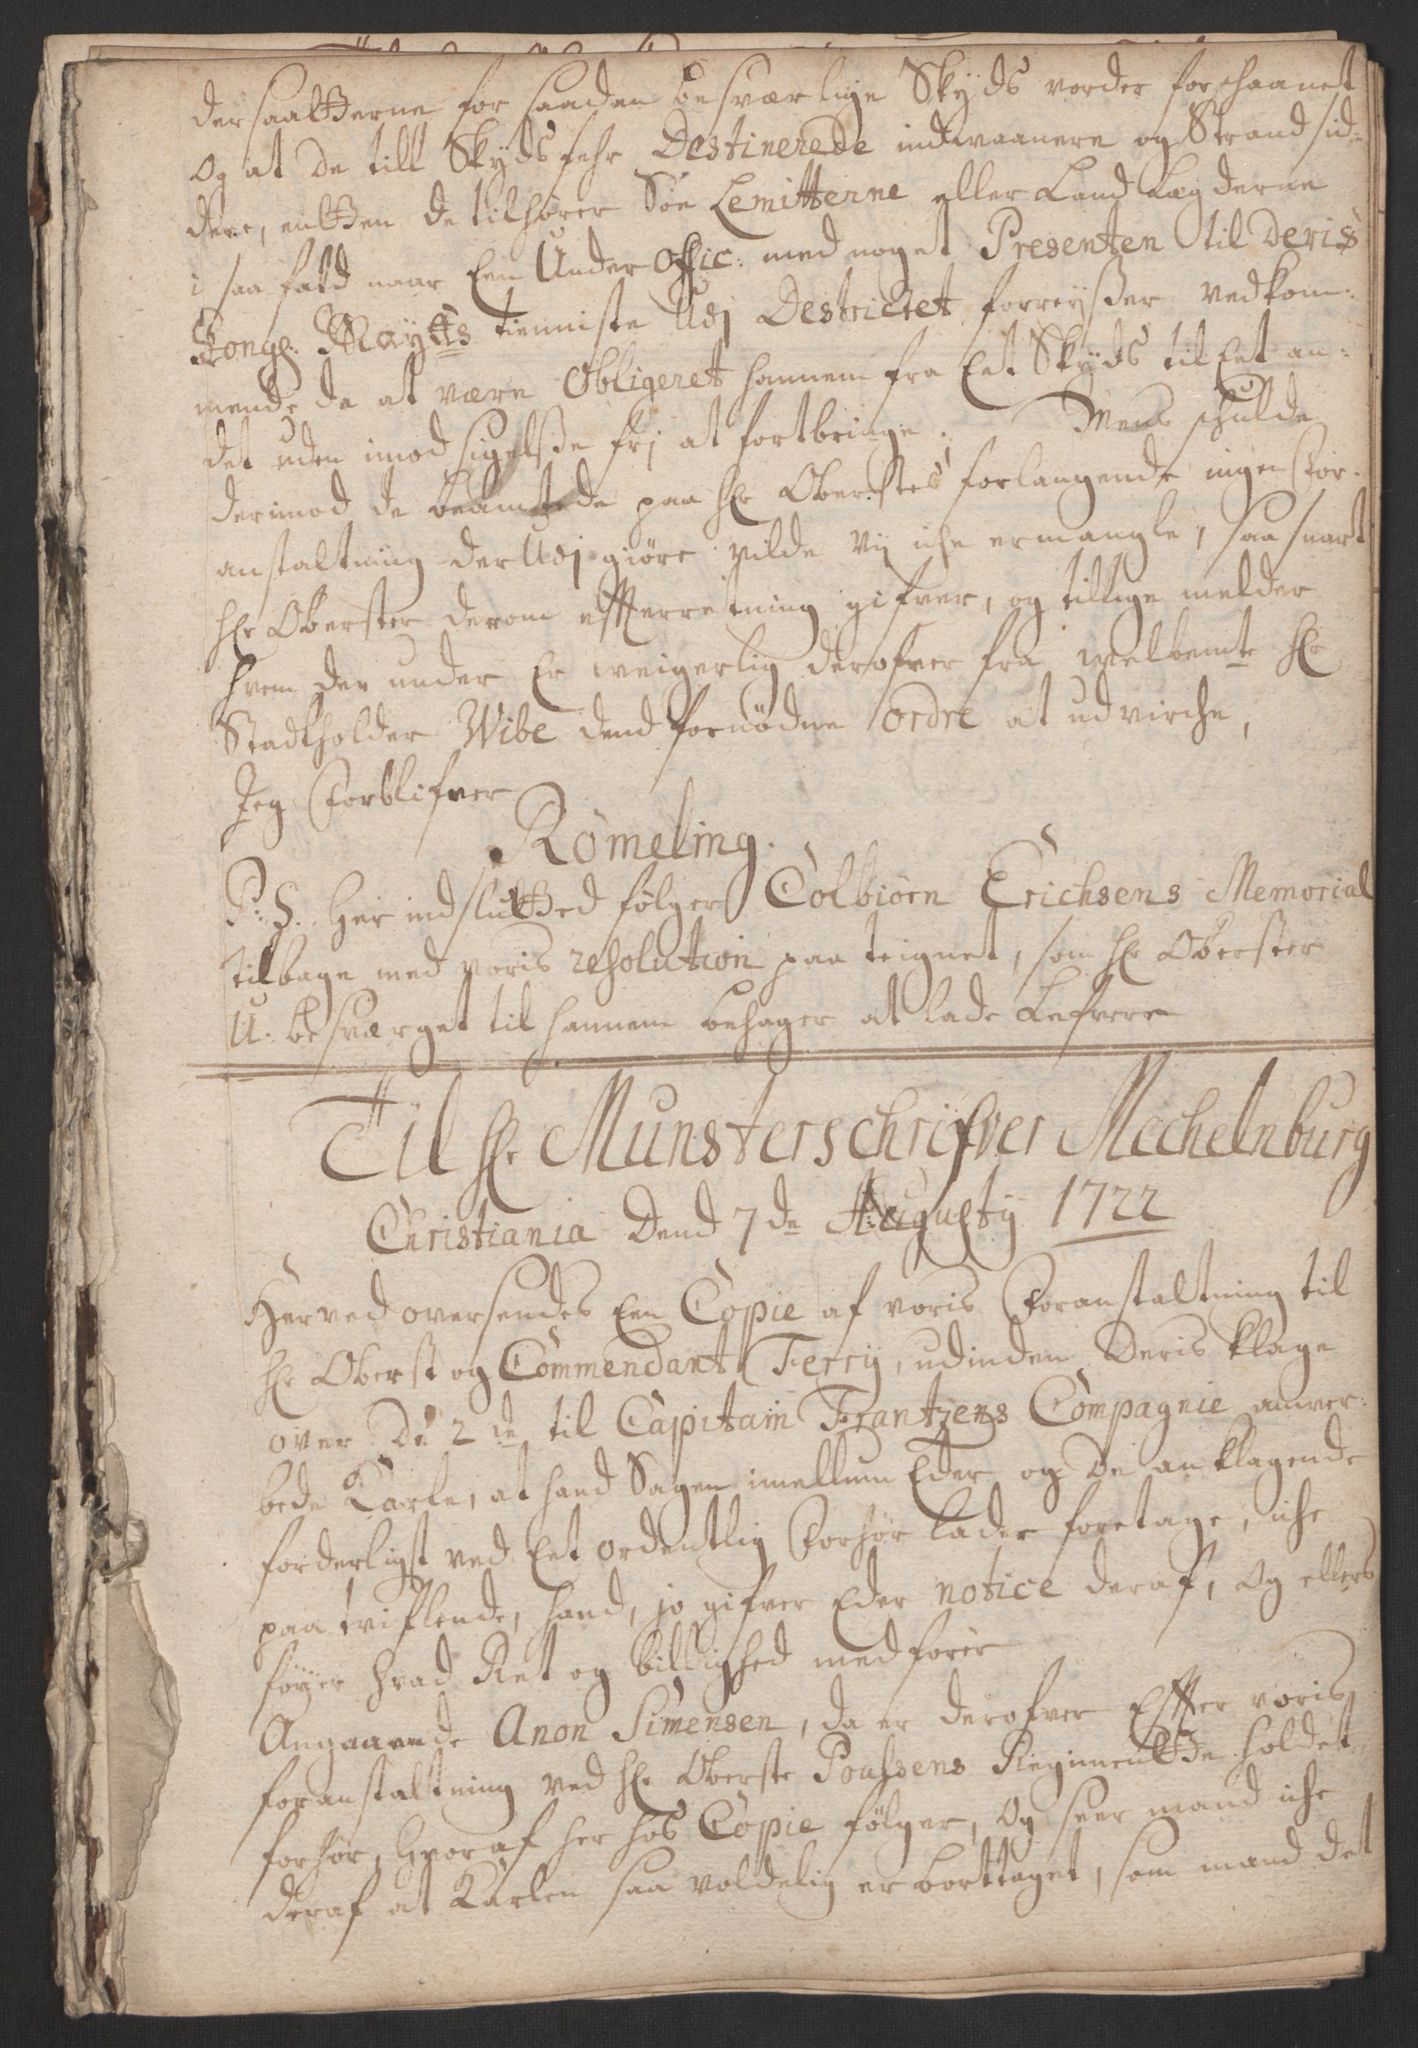 dersaatterne for saadan besværlige Skyds vorder forschaanet
Og at de till Skyds fehr Destinerede indvaanere og Strand sid-
dere, enten de tilhører Söe Lemitterne eller Land Lægderne
i saa fald naar Een Under Offic: med noget Presenten til Deris
Kongl. Maytts tienniste Udj Destrictet forreyßer vedkom-
mende da at være Obligeret hannem fra Eet Skyds til Eet an-
det uden imod sigelsße frj at fortbringe. Mens schulde
derimod de beamtede paa Hr Oberstes forlangende ingen For-
anstaltning der Udj giöre vilde Vij iche ermangle, saa snart
Hr Oberster derom effterretning gifver, og tillige melder
hvem der under Er weigerlig derofver fra welbemte Hr
Stadtholder Wibe dend fornödne ordre at udvirche,
Jeg Forblifver
Römeling.
P: S. Her indslutted følger Colbiörn Erichsens Memorial
tilbage med voris resolution paa teignet, som Hr Oberster
U-besværget til hannem behager at lade Lefvere
Til Hr Munsterschrifver Mechelnburg
Christiania Dend 7de Augusty 1722
Herved oversendes Een Copie af voris Foranstaltning til
Hr Oberst og Commendant Ferry, udinden Deris Klage
over De 2de til Capitain Frantzens Compagnie anver-
bede Karle, at hand Sagen imellum Eder og De anklagende
forderligst ved Eet ordentlig Forhör lader foretage, iche
paa tviflende, hand, jo gifver Eder notice deraf, Og ellers
föyer hvad Ret og billighed medförer
Angaaende Anon Simensen, da er derofver Effter voris
foranstaltning ved Hr Oberste Poulsens Regimentte holdet
forhör, hvoraf her hos Copie følger, Og seer mand iche
deraf at Karlen saa voldelig er borttaget, som mand det